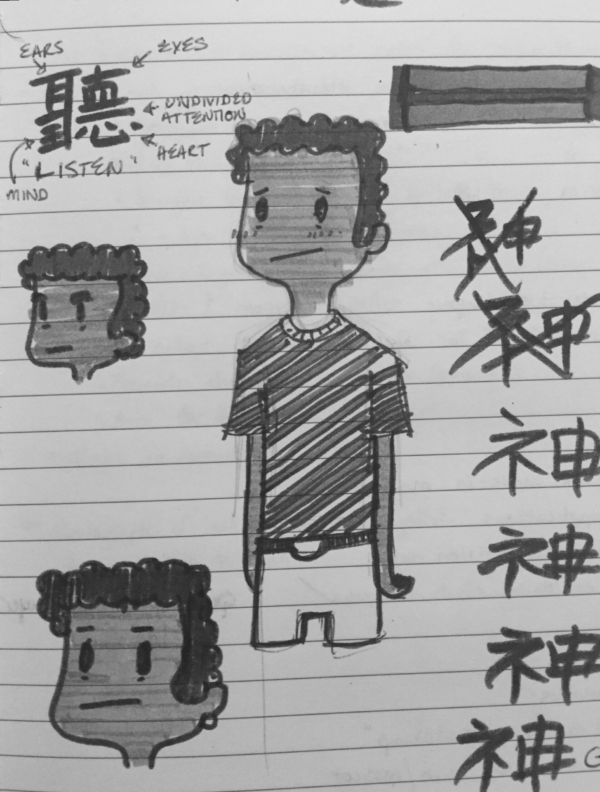 EARS
EYES
聽
UNDIVIDED
ATTENTION
HEART
"LISTEN"
MIND
神
神
神
神
神
神